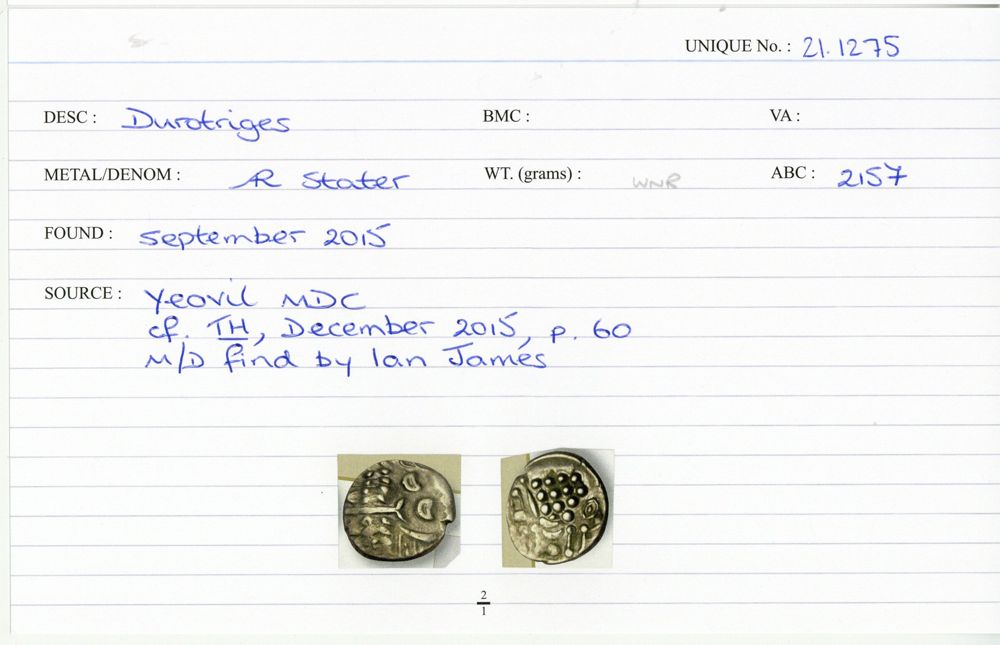 UNIQUE No. : 21.1275
DESC : Durotriges BMC : VA :
METAL/DENOM : AR Stater WT. (grams) : WNR ABC : 2157
FOUND : September 2015
SOURCE : Yeovil MDC
cf. TH, December 2015, p. 60
M/D find by Ian James
2
1